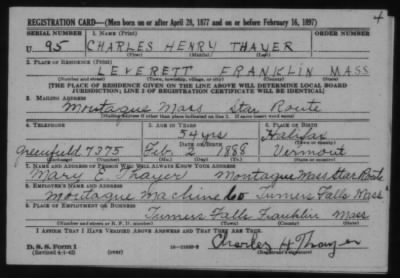 REGISTRATION CARD—(Men born on or after April 28, 1877 and on or before February 16, 1897)
SERIAL NUMBER 1. NAME (Print) ORDER NUMBER
U 95 CHARLES HENRY THAYER
(First) (Middle) (Last)
2. PLACE OF RESIDENCE (Print)
LEVERETT FRANKLIN MASS
(Number and street) (Town, township, village, or city) (County) (State)
[THE PLACE OF RESIDENCE GIVEN ON THE LINE ABOVE WILL DETERMINE LOCAL BOARD
JURISDICTION; LINE 2 OF REGISTRATION CERTIFICATE WILL BE IDENTICAL]
3. MAILING ADDRESS
Montague Mass Star Route
(Mailing address if other than place indicated on line 2. If same insert word same)
4. TELEPHONE 5. AGE IN YEARS 6. PLACE OF BIRTH
54 yrs Halifax
DATE OF BIRTH (Town or county)
Greenfield 7775 Feb 2 1888 Vermont
(Exchange) (Number) (Mo.) (Day) (Yr.) (State or country)
7. NAME AND ADDRESS OF PERSON WHO WILL ALWAYS KNOW YOUR ADDRESS
Mary E. Thayer Montague Mass Star Route
8. EMPLOYER'S NAME AND ADDRESS
Montague Machine Co Turners Falls Mass
9. PLACE OF EMPLOYMENT OR BUSINESS
Turners Falls Franklin Mass
(Number and street or R. F. D. number) (Town) (County) (State)
I AFFIRM THAT I HAVE VERIFIED ABOVE ANSWERS AND THAT THEY ARE TRUE.
D. S. S. Form 1 Charles H Thayer
(Revised 4-1-42) (over) (Registrant's signature)